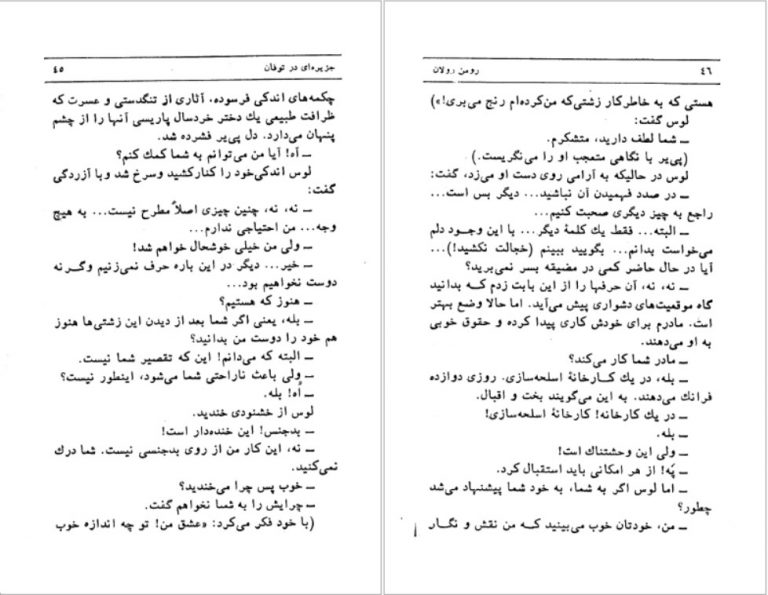 جزیره‌ای در توفان
٤٥
چکمه‌های اندکی فرسوده، آثاری از تنگدستی و عسرت که
ظرافت طبیعی یك دختر خردسال پاریسی آنها را از چشم
پنهان می‌دارد. دل پی‌یر فشرده شد.
ــ آه! آیا من می‌توانم به شما کمك کنم؟
لوس اندکی خود را کنار کشید و سرخ شد و با آزردگی
گفت:
ــ نه، نه، چنین چیزی اصلاً مطرح نیست... به هیچ
وجه... من احتیاجی ندارم...
ــ ولی من خیلی خوشحال خواهم شد!
ــ خیر... دیگر در این باره حرف نمی‌زنیم وگرنه
دوست نخواهیم بود...
ــ هنوز که هستیم؟
ــ بله، یعنی اگر شما بعد از دیدن این زشتی‌ها هنوز
هم خود را دوست من بدانید؟
ــ البته که می‌دانم! این که تقصیر شما نیست.
ــ ولی باعث ناراحتی شما می‌شود، اینطور نیست؟
ــ اُه! بله.
لوس از خشنودی خندید.
ــ بدجنس! این خنده‌دار است!
ــ نه، این کار من از روی بدجنسی نیست. شما درك
نمی‌کنید.
ــ خوب پس چرا می‌خندید؟
ــ چرایش را به شما نخواهم گفت.
(با خود فکر می‌کرد: «عشق من! تو چه اندازه خوب
رومن رولان
٤٦
هستی که به خاطر کار زشتی که من کرده‌ام رنج می‌بری!»)
لوس گفت:
ــ شما لطف دارید، متشکرم.
(پی‌یر با نگاهی متعجب او را می‌نگریست.)
لوس در حالیکه به آرامی روی دست او می‌زد، گفت:
ــ در صدد فهمیدن آن نباشید... دیگر بس است...
راجع به چیز دیگری صحبت کنیم...
ــ البته... فقط یك کلمهٔ دیگر... با این وجود دلم
می‌خواست بدانم... بگویید ببینم (خجالت نکشید!)...
آیا در حال حاضر کمی در مضیقه بسر نمی‌برید؟
ــ نه، نه، آن حرفها را از این بابت زدم که بدانید
گاه موقعیت‌های دشواری پیش می‌آید. اما حالا وضع بهتر
است. مادرم برای خودش کاری پیدا کرده و حقوق خوبی
به او می‌دهند.
ــ مادر شما کار می‌کند؟
ــ بله، در یك کارخانهٔ اسلحه‌سازی. روزی دوازده
فرانك می‌دهند. به این می‌گویند بخت و اقبال.
ــ در یك کارخانه! کارخانهٔ اسلحه‌سازی!
ــ بله.
ــ ولی این وحشتناك است!
ــ پَه! از هر امکانی باید استقبال کرد.
ــ اما لوس اگر به شما، به خود شما پیشنهاد می‌شد
چطور؟
ــ من، خودتان خوب می‌بینید که من نقش و نگار